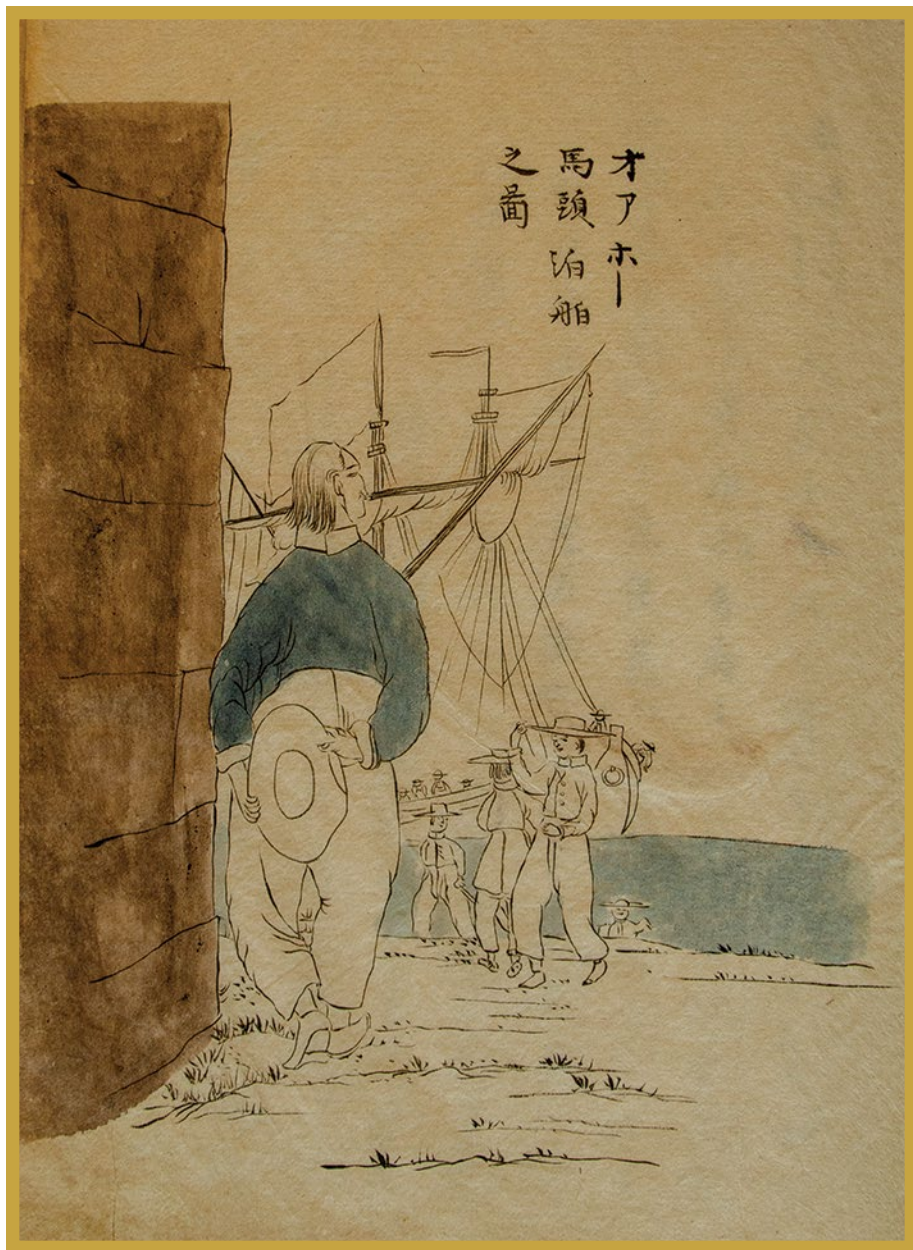 オアホー
馬頭泊舶
之圖